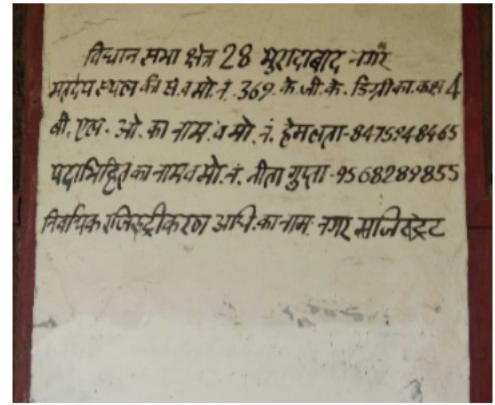 विधान सभा क्षेत्र 28 मुरादाबाद नगर
मतदेय स्थल की सं. व मो. नं. 369 के. जी. के. डिग्री का. कक्ष 4
बी. एल. ओ. का नाम व मो. नं. हेमलता-8475948465
पदाभिहित का नाम व मो. नं. नीता गुप्ता-9568289855
निर्वाचक रजिस्ट्रीकरण अधि. का नाम. नगर मजिस्ट्रेट